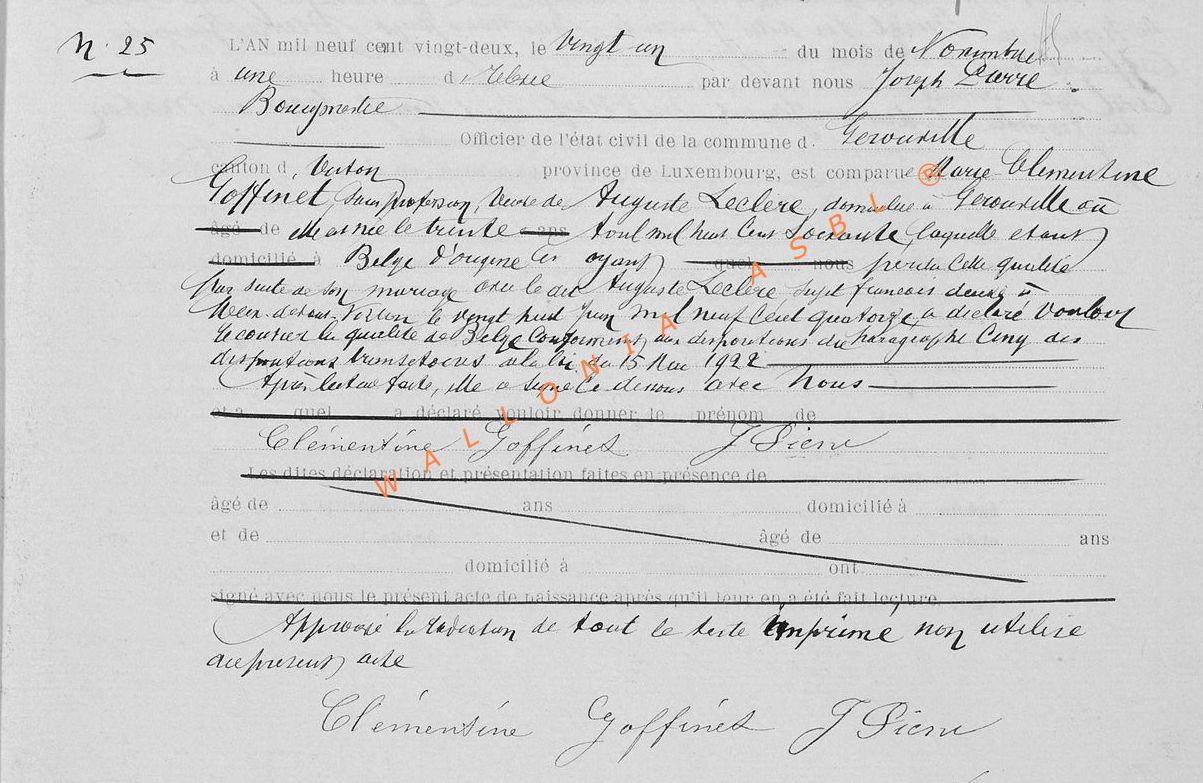 N. 25
L'AN mil neuf cent vingt-deux, le vingt un du mois de Novembre
à une heure d relevée par devant nous Joseph Pierre
Bourgmestre
Officier de l'état civil de la commune d. Gerouville
canton d. Virton province de Luxembourg, est comparue Marie Clementine
Goffinet sans profession, veuve de Auguste Leclère, domiciliée à Gerouville où
âgé de elle est née le trente ans août mil huit cent soixante, laquelle étant
domicilié à Belge d'origine et ayant quel nous perdu cette qualité
par suite de son mariage avec le dit Auguste Leclère sujet francais décédé à
Meix-devant-Virton le vingt huit juin mil neuf cent quatorze, a déclaré vouloir
recouvrer la qualité de Belge conformément aux dispositions du paragraphe Cinq des
dispositions transitoires de la loi du 15 Mai 1922
Après lecture faite, elle a signé ci dessous avec Nous
et a quel a déclaré vouloir donner le prénom de
Clémentine Goffinet J Pierre
Les dites déclaration et présentation faites en présence de
âgé de ans domicilié à
et de âgé de ans
domicilié à ont
signé avec nous le présent acte de naissance après qu'il leur en a été fait lecture.
Approuvé la radiation de tout le texte imprimé non utilisé
au présent acte
Clémentine Goffinet J Pierre
WALLONIA ASBL ®